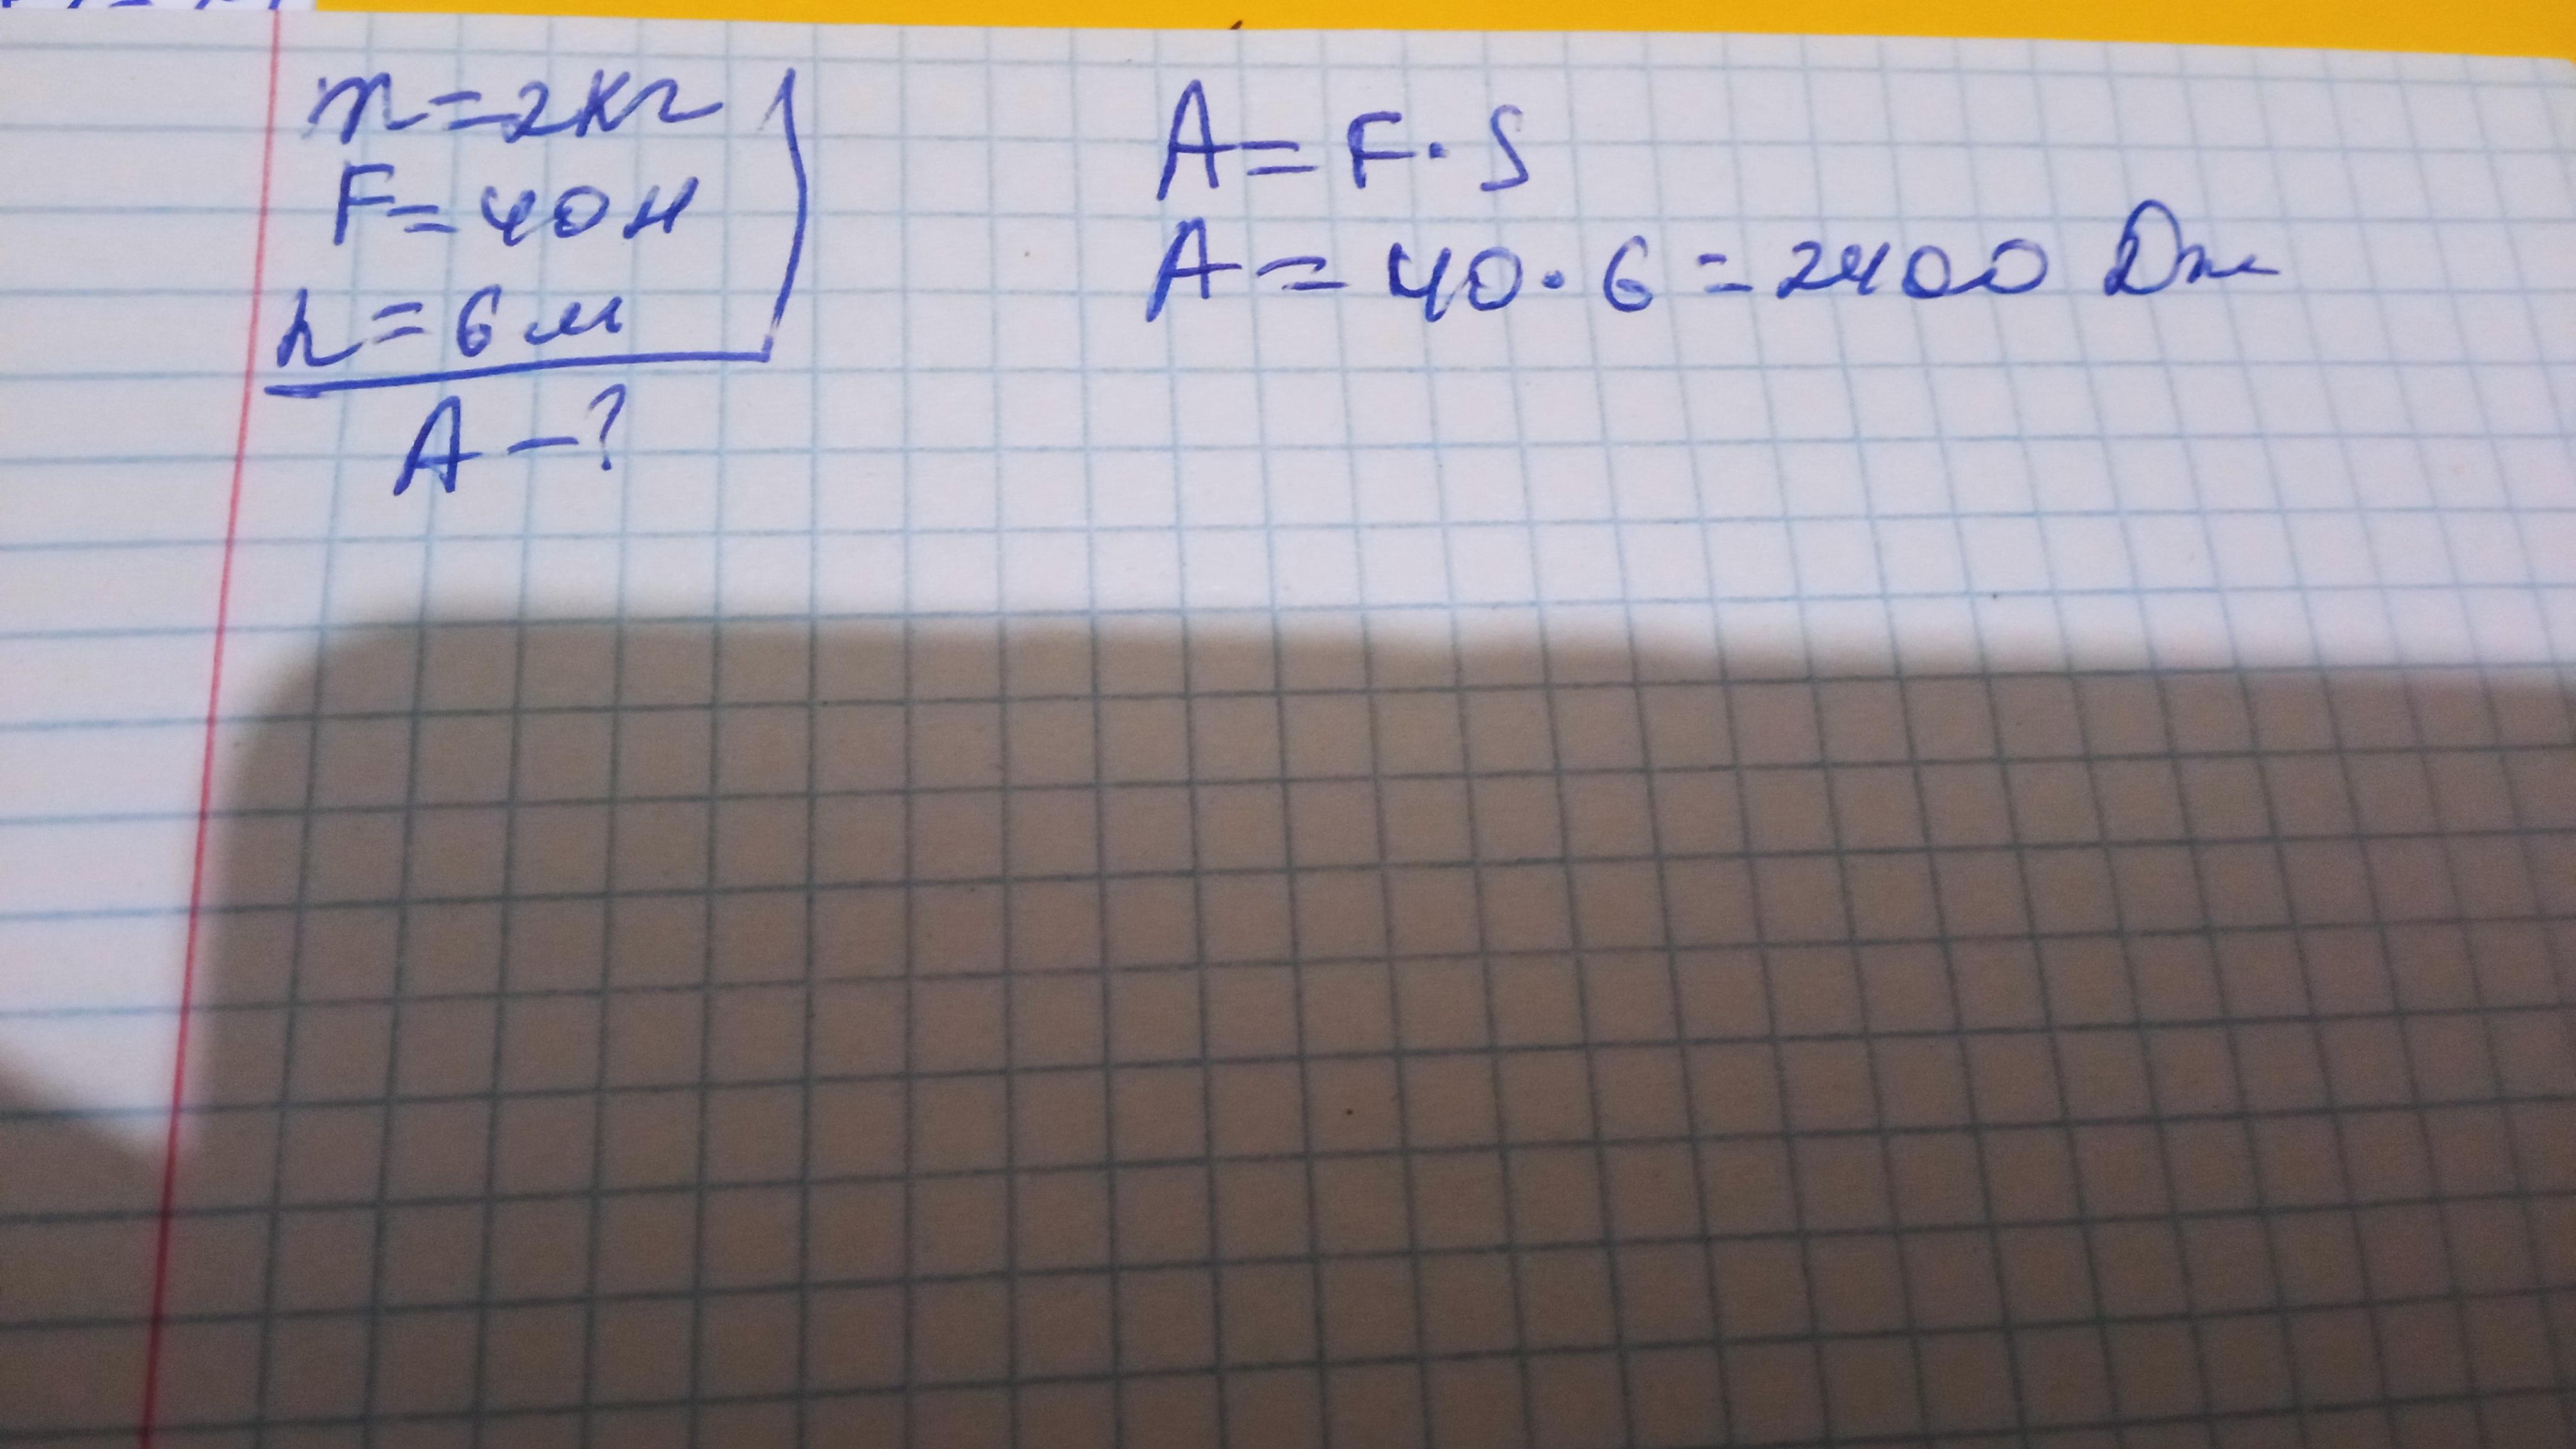 m=2кг
F=40н
h=6м
A-?
A=F·S
A=40·6=2400 Дж